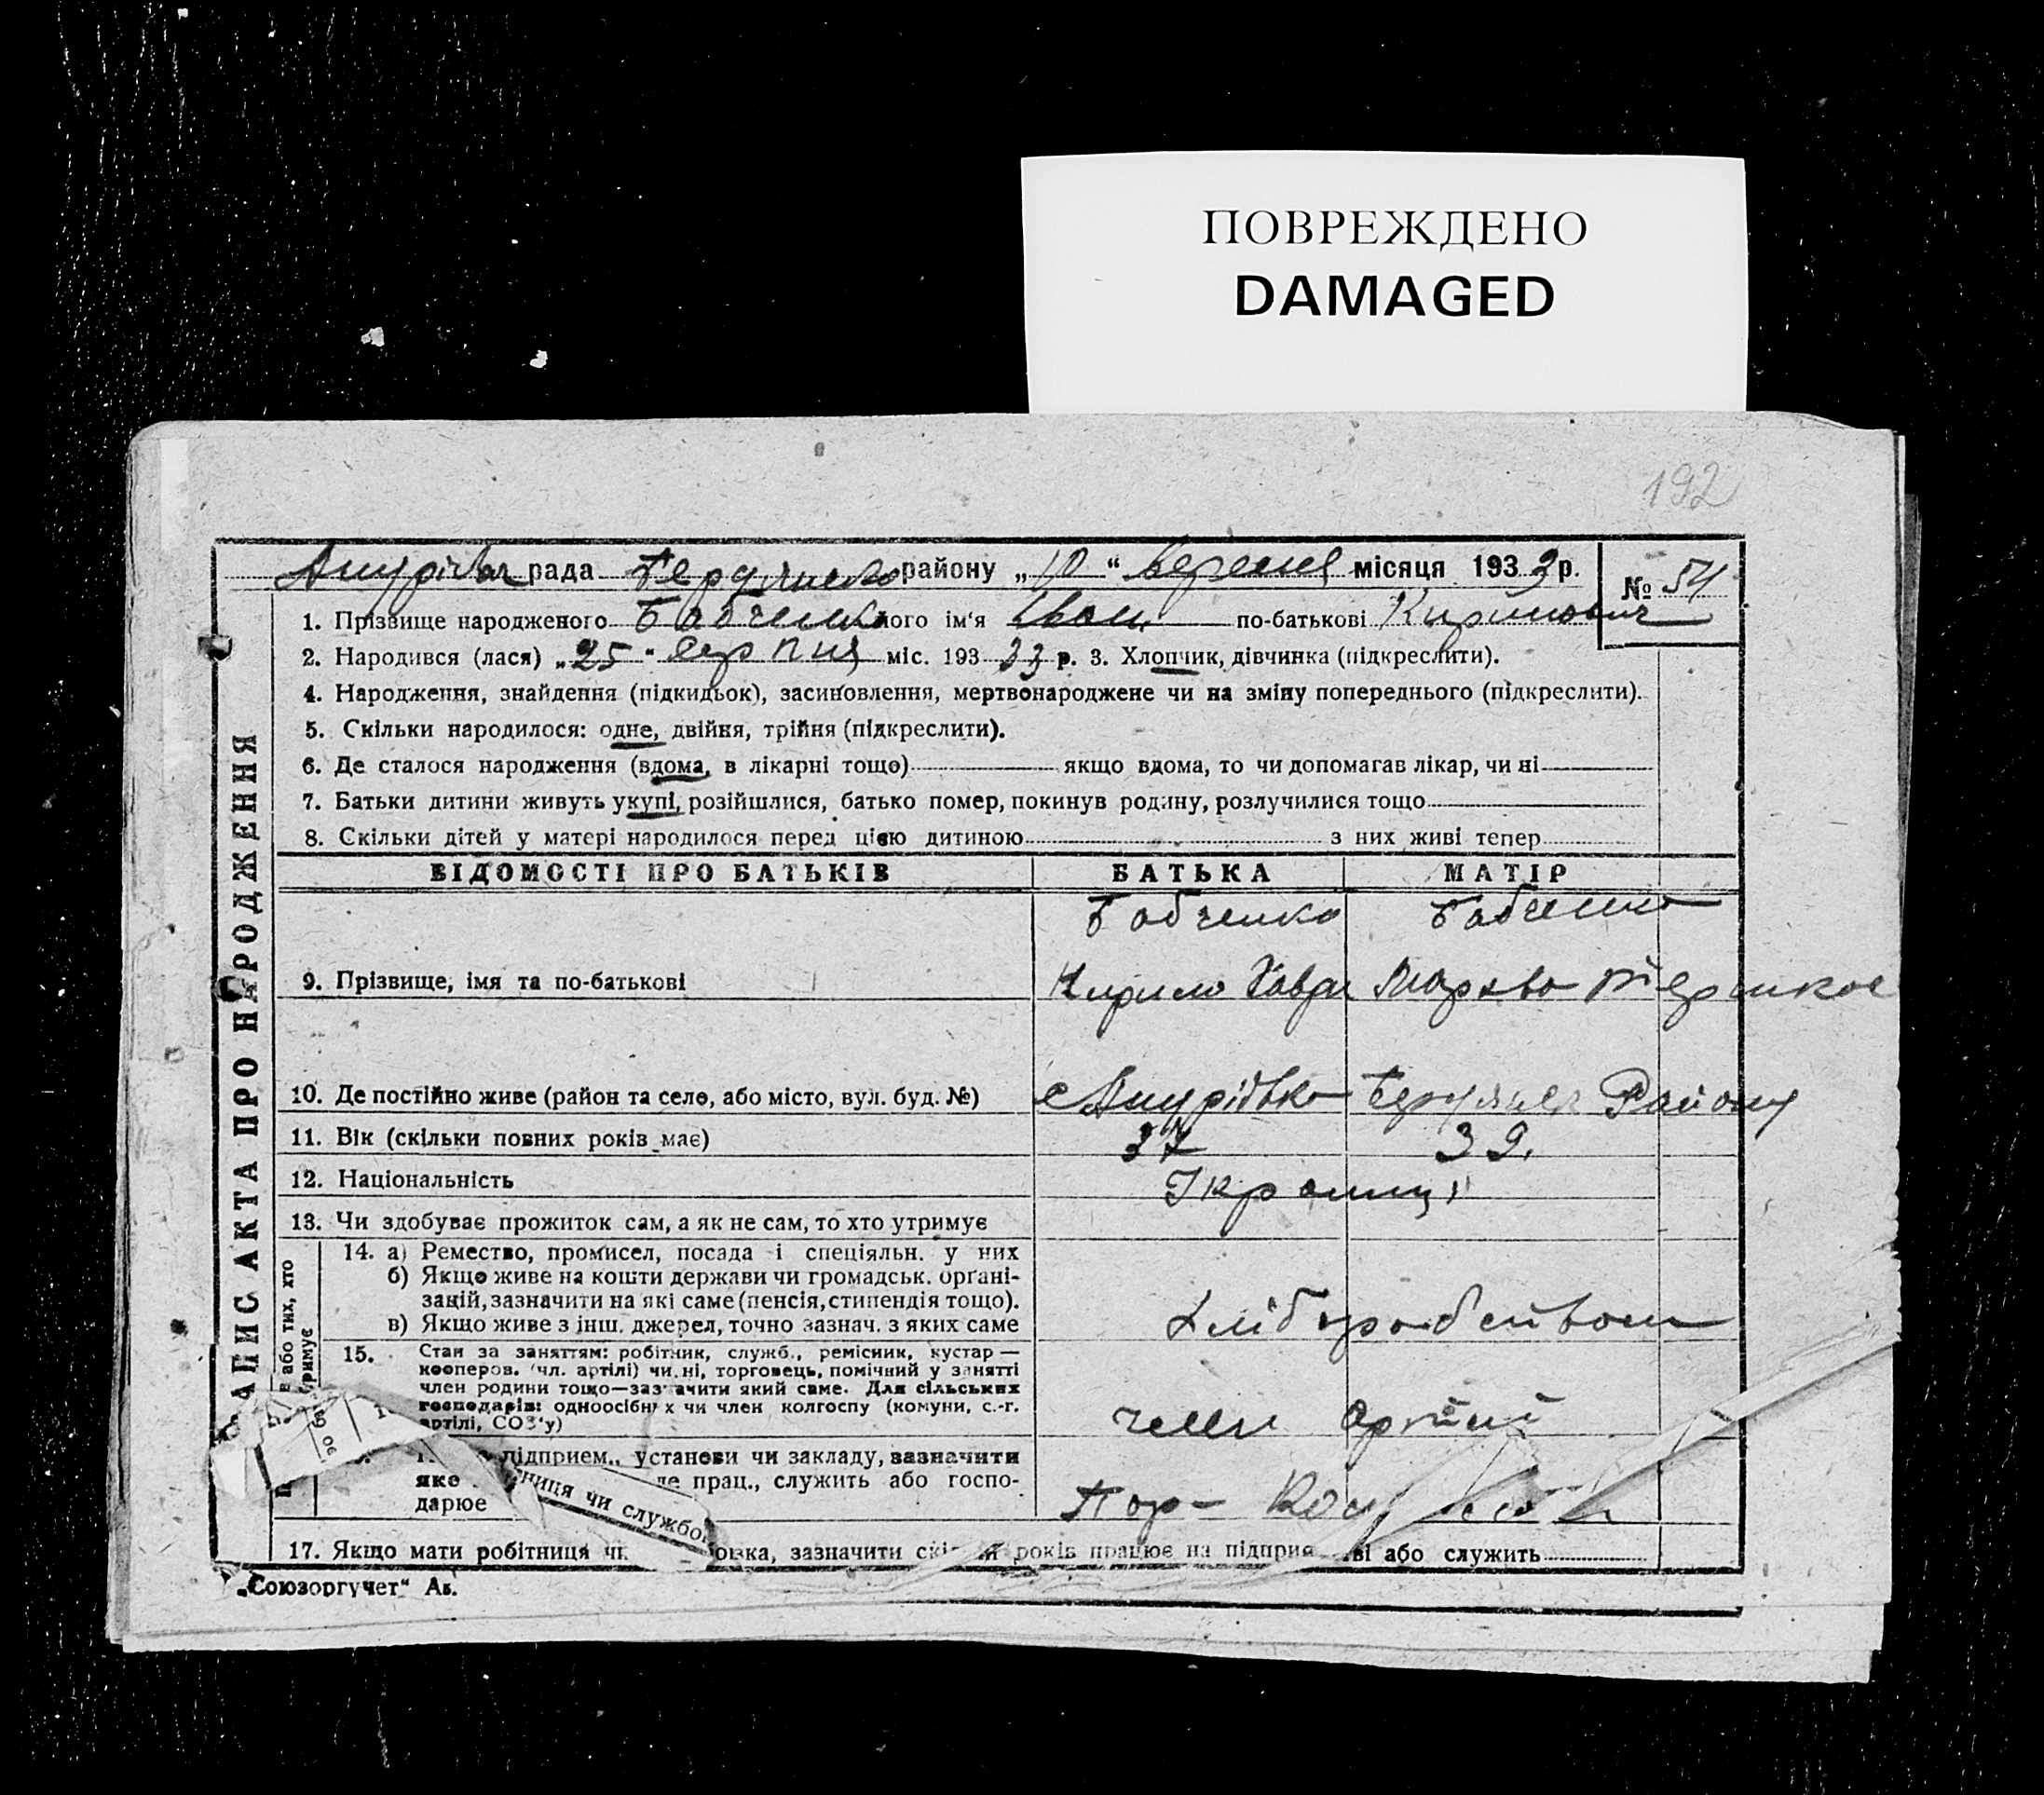 ПОВРЕЖДЕНО
DAMAGED
192
рада Бердянсько району „10“ Вересня місяця 1933 р. № 54
1. Прізвище народженого Бабченко його ім‘я Іван по-батькові Кирилович
2. Народився (лася) „25“ серпня міс. 193 33 р. 3. Хлопчик, дівчинка (підкреслити).
4. Народження, знайдення (підкидьок), засиновлення, мертвонароджене чи на зміну попереднього (підкреслити).
5. Скільки народилося: одне, двійня, трійня (підкреслити).
6. Де сталося народження (вдома, в лікарні тощо) якщо вдома, то чи допомагав лікар, чи ні
7. Батьки дитини живуть укупі, розійшлися, батько помер, покинув родину, розлучилися тощо
8. Скільки дітей у матері народилося перед цією дитиною з них живі тепер
ЗАПИС АКТА ПРО НАРОДЖЕННЯ
ВІДОМОСТІ ПРО БАТЬКІВ БАТЬКА МАТІР
Бабченко Бабченко
9. Прізвище, імя та по-батькові Кирило
10. Де постійно живе (район та село, або місто, вул. буд. №) с Району
11. Вік (скільки повних років має) 37 39.
12. Національність Українці
13. Чи здобуває прожиток сам, а як не сам, то хто утримує
або тих, хто
14. а) Ремество, промисел, посада і спеціяльн. у них
б) Якщо живе на кошти держави чи громадськ. організацій, зазначити на які саме (пенсія, стипендія тощо).
в) Якщо живе з інш. джерел, точно зазнач. з яких саме Хліборобством
15. Стан за заняттям: робітник, служб., ремісник, кустар —
кооперов. (чл. артілі) чи ні, торговець, помічний у занятті
член родини тощо—зазначити який саме. Для сільських
господарів: одноосібник чи член колгоспу (комуни, с.-г.
артілі, СОЗ‘у) член Артілі
підприєм., установи чи закладу, зазначити
яке прац., служить або госпо-
дарює
ниця чи службо
17. Якщо мати робітниця зазначити років працює на підприє ві або служить
„Союзоргучет“ Ав.